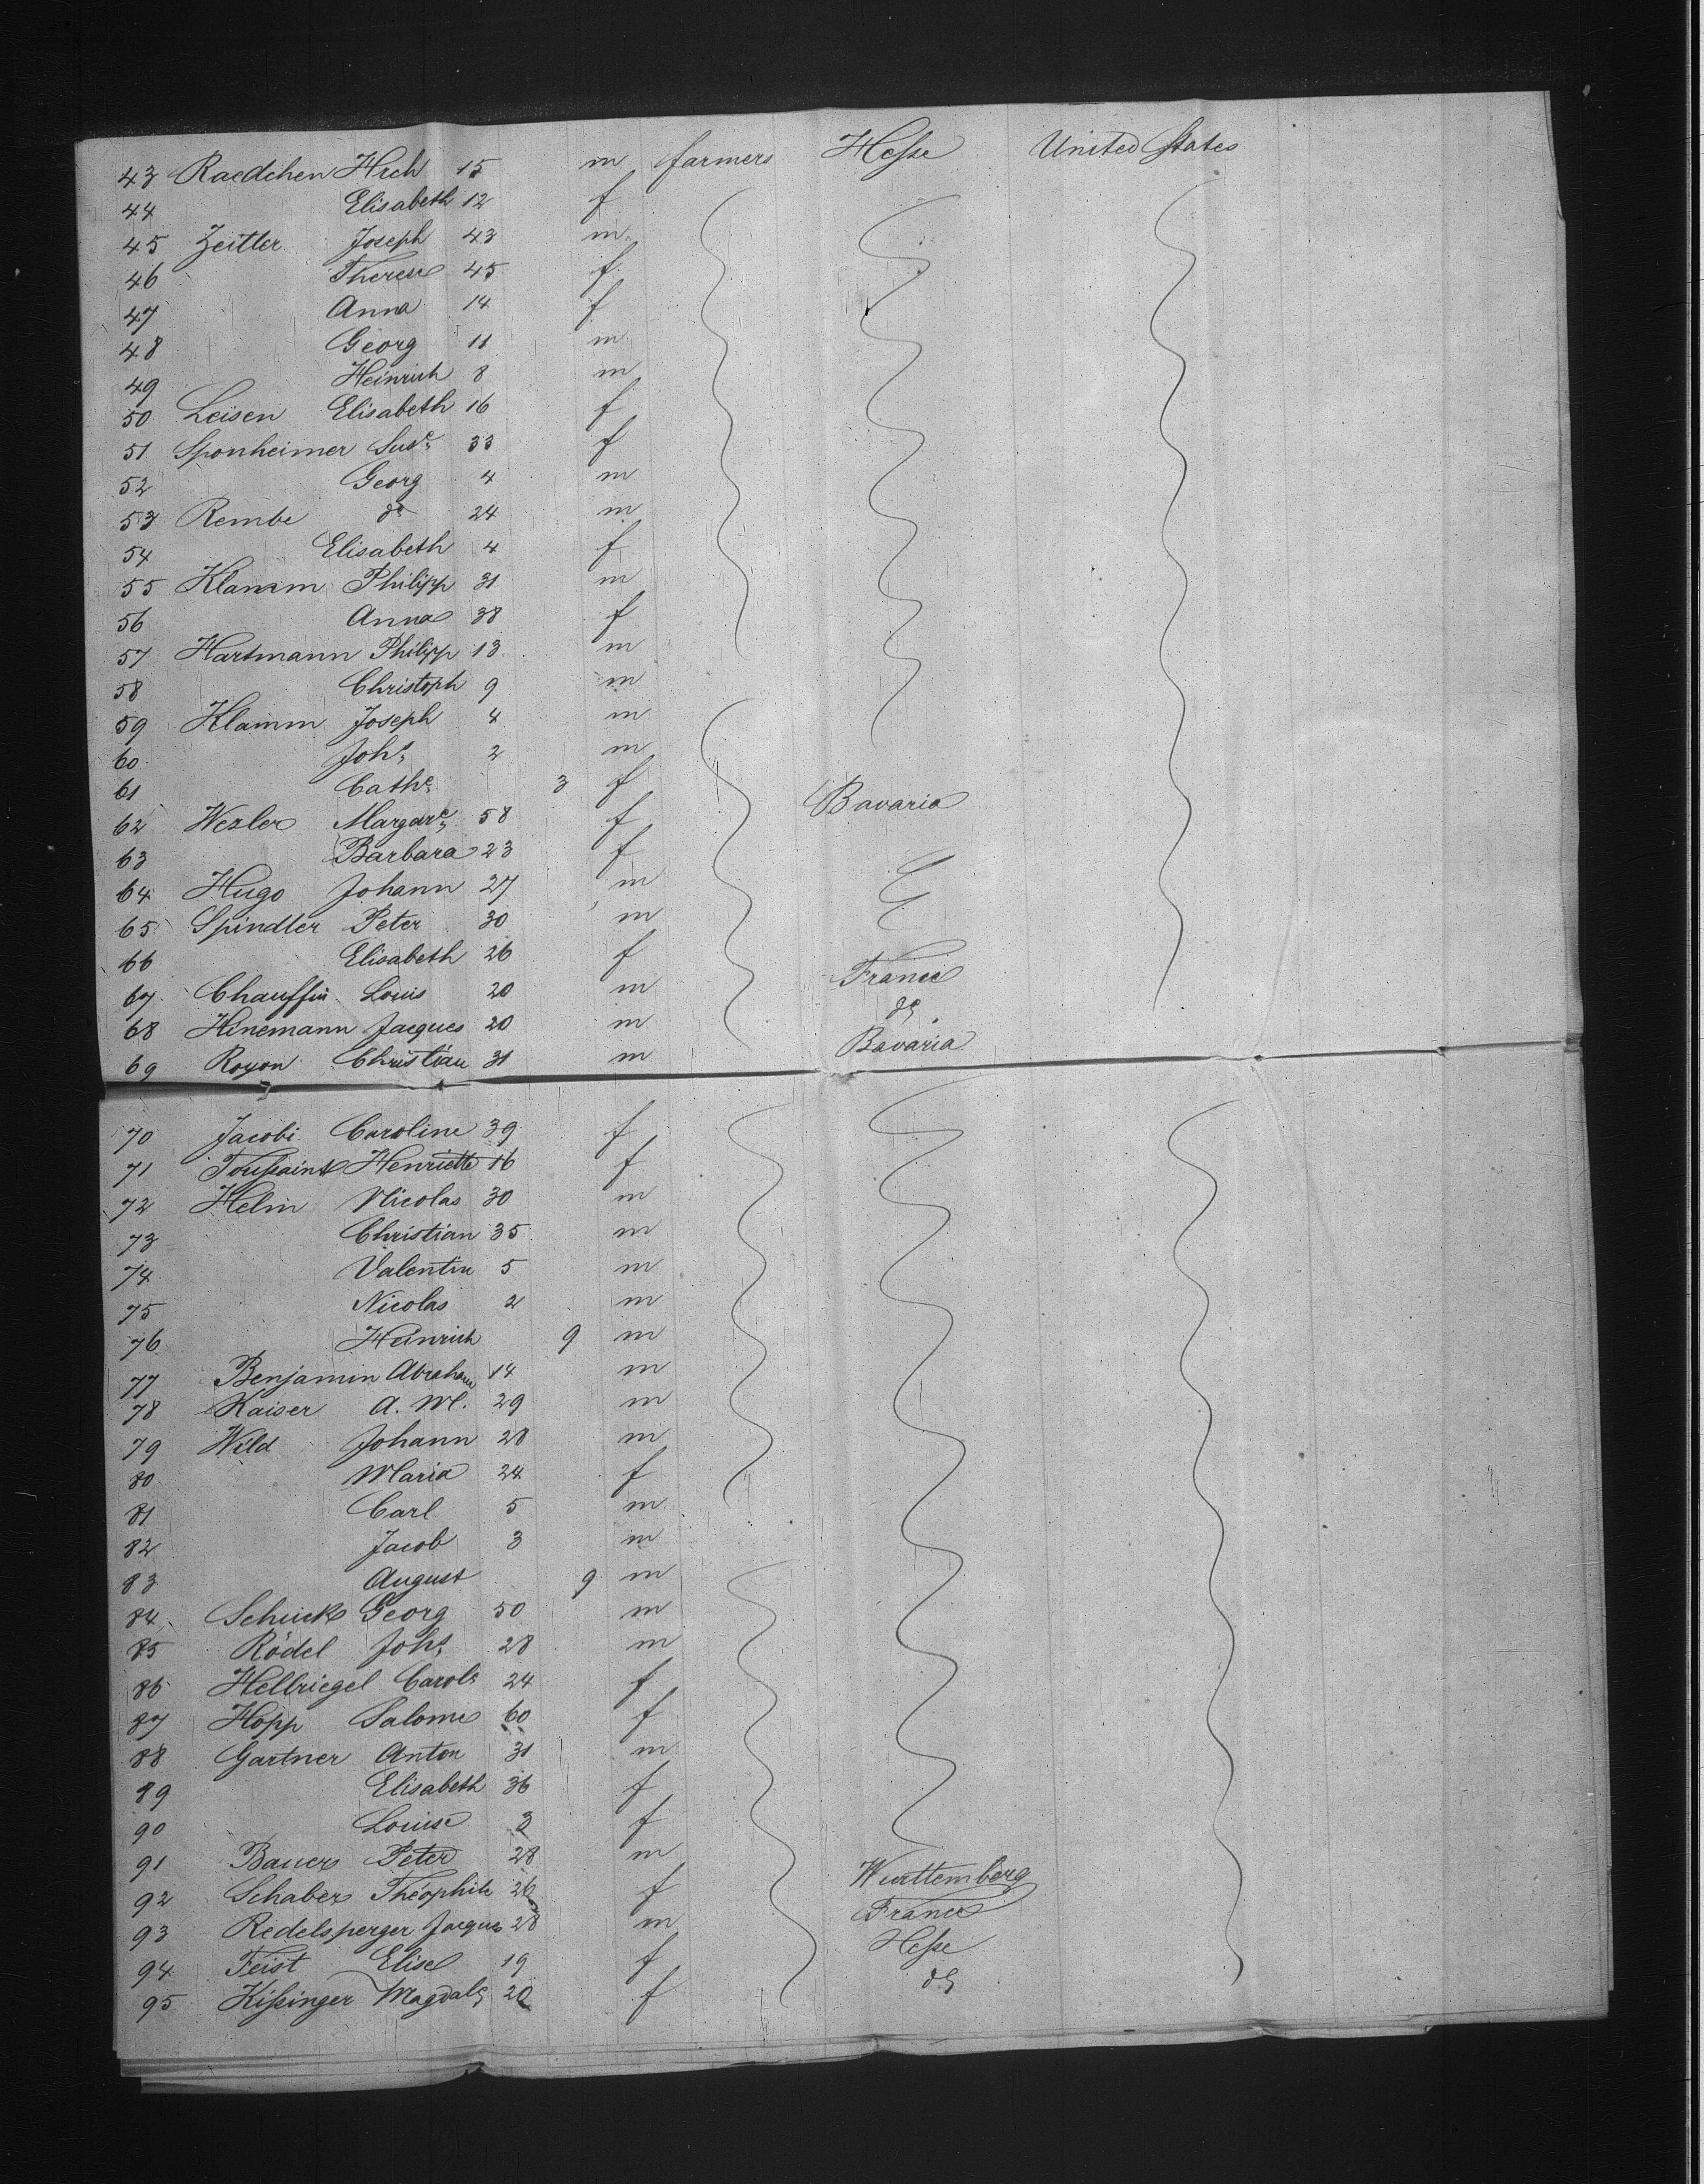 43 Raedchen Hrch 15 m farmers Hesse United States
44 Elisabeth 12 f
45 Zeitler Joseph 43 m
46 Therese 45 f
47 Anna 14 f
48 Georg 11 m
49 Heinrich 8 m
50 Leisen Elisabeth 16 f
51 Sponheimer Sus.e 33 f
52 Georg 4 m
53 Rembe do 24 m
54 Elisabeth 4 f
55 Klamm Philipp 31 m
56 Anna 38 f
57 Hartmann Philipp 13 m
58 Christoph 9 m
59 Klamm Joseph 4 m
60 Johs 2 m
61 Cathe 3 f
62 Wezler Margare 58 f Bavaria
63 Barbara 23 f
64 Hugo Johann 27 m
65 Spindler Peter 30 m
66 Elisabeth 26 f
67 Chauffin Louis 20 m France
68 Hinemann Jacques 20 m do
69 Royon Christian 31 m Bavaria
70 Jacobi Caroline 39 f
71 Toussaint Henriette 16 f
72 Helm Nicolas 30 m
73 Christian 35 m
74 Valentin 5 m
75 Nicolas 2 m
76 Heinrich 9 m
77 Benjamin Abraham 14 m
78 Kaiser A. M. 29 m
79 Wild Johann 28 m
80 Maria 24 f
81 Carl 5 m
82 Jacob 3 m
83 August 9 m
84 Schuck Georg 50 m
85 Rödel Johs 28 m
86 Hellriegel Carole 24 f
87 Hopp Salome 60 f
88 Gartner Anton 31 m
89 Elisabeth 36 f
90 Louise 3 f
91 Bauer Peter 28 m
92 Schaber Théophile 26 f Wurttemberg
93 Redelsperger Jacques 28 m France
94 Feist Elise 19 f Hesse
95 Kissinger Magdale 20 f do